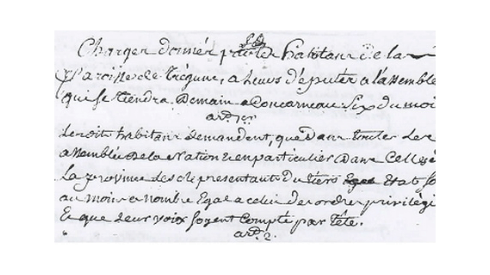 Charges données par les habitans de la
Paroisse de Trégunc, a Leurs députés a l'assemblé
qui se tiendra Demain a Concarneau Six du moi
art. 1er
Lesdits habitans demandent, que Dans toutes Les
assemblées de la Nation et en particulier Dans Celles de
La province les representants du tiers Etat so
au moins en nombre Egal a celui des ordres privilégi
Et que Leur voix soyent Compté par tête.
art. 2.